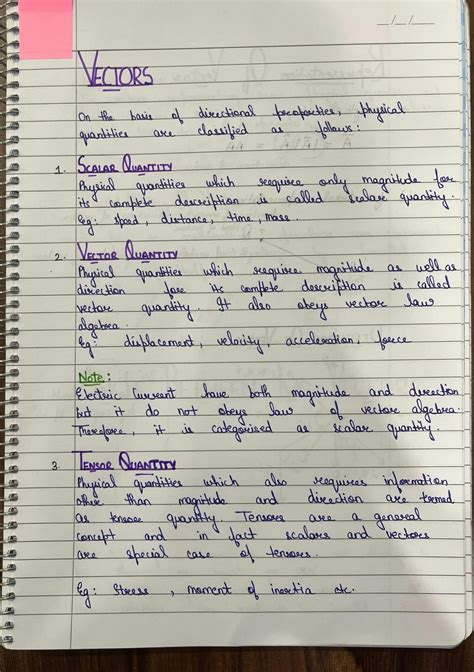 __/__/____
VECTORS
On the basis of directional properties, physical
quantities are classified as follows:
1. SCALAR QUANTITY
Physical quantities which require only magnitude for
its complete description is called scalar quantity.
Eg: speed, distance, time, mass.
2. VECTOR QUANTITY
Physical quantities which require magnitude as well as
direction for its complete description is called
vector quantity. It also obeys vector law
algebra.
Eg: displacement, velocity, acceleration, force
Note:
Electric Current have both magnitude and direction
but it do not obeys law of vector algebra.
Therefore, it is categorised as scalar quantity.
3. TENSOR QUANTITY
Physical quantities which also requires information
other than magnitude and direction are termed
as tensor quantity. Tensors are a general
concept and in fact scalars and vectors
are special case of tensors.
Eg: Stress, moment of inertia etc.